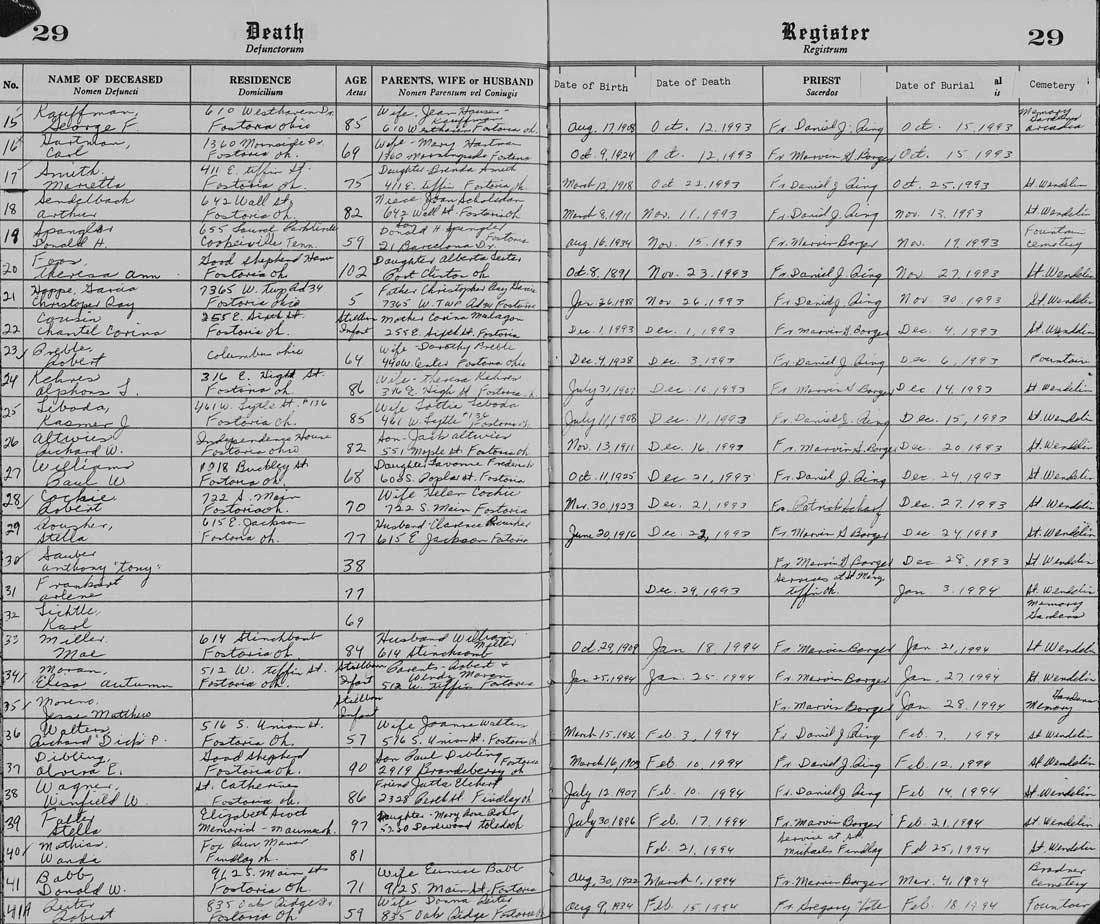 29 Death Register 29
Defunctorum Registrum
No. NAME OF DECEASED RESIDENCE AGE PARENTS, WIFE or HUSBAND Date of Birth Date of Death PRIEST Date of Burial al Cemetery
Nomen Defuncti Domicilium Aetas Nomen Parentum vel Coniugis Sacerdos is
Kauffman, 610 Westhaven Dr. Wife, Jean Hauser- Memory
15 George F. Fostoria Ohio 85 Kauffman Aug. 17, 1908 Oct. 12, 1993 Fr. Daniel J. Ring Oct. 15, 1993 Gardens
610 Westhaven Fostoria Oh. Arcadia
16 Hartman, 1360 Morningside Dr. Wife - Mary Hartman
Carl Fostoria Oh. 69 1360 Morningside Fostoria Oct. 9, 1924 Oct. 12, 1993 Fr. Marvin G Borger Oct. 15 1993
17 Smith, 411 E. Tiffin St. Daughter Brenda Smith
Marietta Fostoria Oh. 75 411 E. Tiffin Fostoria Oh. March 12, 1918 Oct 22, 1993 Fr Daniel J Ring Oct. 25, 1993 St. Wendelin
18 Sendelbach 642 Wall St. Niece Joan
Arthur Fostoria Oh. 82 642 Wall St. Fostoria Oh March 8, 1911 Nov. 11, 1993 Fr. Daniel J. Ring Nov. 13, 1993 St. Wendelin
19 Spangler 655 Laurel Donald H Spangler Fostoria Fountain
Donald H. Cookeville Tenn. 59 21 Barcelona Dr. Aug. 16, 1934 Nov. 15, 1993 Fr. Marvin Borger Nov. 19, 1993 Cemetery
20 Foos, Good Shepherd Home Daughter Alberta Reiter
Theresa Ann Fostoria Oh 102 Port Clinton Oh Oct. 8, 1891 Nov. 23, 1993 Fr. Daniel J. Ring Nov. 27, 1993 St. Wendelin
21 Hoppe, Garcia 7365 W. Twp Rd 34 Father Christopher Ray Garcia
Christopher Ray Fostoria Ohio 5 7365 W. TWP Rd 34 Fostoria Jan. 26, 1988 Nov. 26, 1993 Fr. Daniel J. Ring Nov 30, 1993 St. Wendelin
22 Cousin 255 E. Sixth St. Stillborn Mother Corina Malagon
Chantel Corina Fostoria Oh. Infant 255 E. Sixth St. Fostoria Dec. 1, 1993 Dec. 1, 1993 Fr. Marvin G Borger Dec. 4, 1993 St. Wendelin
23 Preble, Columbus Ohio Wife - Dorothy Preble
Robert 64 440 W Center Fostoria Ohio Dec. 4, 1928 Dec. 3, 1993 Fr. Daniel J. Ring Dec. 6, 1993 Fountain
24 Kehres 316 E. High St. Wife - Theresa Kehres
Alphons L. Fostoria Oh 86 316 E. High St Fostoria Oh. July 31, 1907 Dec. 10, 1993 Fr. Marvin G. Borger Dec. 14, 1993 St. Wendelin
25 Leboda, 461 W. Lytle St. #136 Wife Lottie Leboda
Kasmer J Fostoria Oh. 85 461 W. Lytle #136 Fostoria Oh. July 11, 1908 Dec. 11, 1993 Fr. Daniel J. Ring Dec. 15, 1993 St. Wendelin
26 Altwies Independence House Son - Jack Altwies
Richard W. Fostoria Ohio 82 551 Maple St. Fostoria Oh Nov. 13, 1911 Dec. 16, 1993 Fr. Marvin G. Borger Dec. 20 1993 St. Wendelin
27 Williams 1718 Buckley St Daughter Lavonne Frederick
Paul W. Fostoria Oh. 68 600 S. Poplar St. Fostoria Oct. 11, 1925 Dec. 21, 1993 Fr. Daniel J. Ring Dec. 24, 1993 St. Wendelin
28 Cockie, 722 S. Main Wife Helen Cockie
Robert Fostoria Oh. 70 722 S. Main Fostoria Mar. 30, 1923 Dec. 21, 1993 Fr. Patrick Scharf Dec. 27, 1993 St. Wendelin
29 Rousher, 615 E. Jackson Husband Clarence Rousher
Stella Fostoria Oh. 77 615 E Jackson Fostoria June 20, 1916 Dec. 22, 1993 Fr. Marvin G Borger Dec. 24, 1993 St. Wendelin
30 Sauber
Anthony "Tony" 38 Fr. Marvin G Borger Dec 28, 1993 St Wendelin
31 Frankart Services at St Mary
Arlene 77 Dec. 29, 1993 Tiffin Oh. Jan. 3, 1994 St. Wendelin
32 Lichtle, Memory
Karl 69 Gardens
33 Miller 614 Stinchcomb Husband William Miller
Mae Fostoria Oh. 84 614 Stinchcomb Oct. 29, 1909 Jan 18, 1994 Fr. Marvin Borger Jan. 21, 1994 St Wendelin
34 Moran, 512 W. Tiffin St. Stillborn Parents - Robert &
Elisa Autumn Fostoria Oh. Infant Wendy Moran Jan 25, 1994 Jan. 25 1994 Fr Marvin Borger Jan. 27 1994 St Wendelin
512 W. Tiffin Fostoria
35 Moreno, Stillborn Gardens
Jesse Matthew Infant Fr. Marvin Borger Jan. 28, 1994 Memory
36 Walters, 516 S. Union St. Wife Joanne Walters
Richard "Dick" P. Fostoria Oh. 57 516 S. Union St. Fostoria Oh. March 15, 1936 Feb. 3, 1994 Fr Daniel J. Ring Feb. 7, 1994 St. Wendelin
37 Dibling, Good Shepherd Son Paul Dibling Fostoria
Alvera E. Fostoria Oh. 90 2919 Brandeberry Oh March 16, 1903 Feb. 10, 1994 Fr Daniel J Ring Feb. 12, 1994 St Wendelin
38 Wagner, St. Catherines Friend Jutta Elchert
Winfield W. Fostoria Oh. 86 2328 St. Findlay Oh July 12, 1907 Feb. 10. 1994 Fr. Daniel J Ring Feb 14, 1994 St. Wendelin
39 Elizabeth Scott Daughter - Mary Lou
Stella Memorial - Maumee Oh. 97 Toledo Oh July 30 1896 Feb. 17, 1994 Fr. Marvin Borger Feb. 21, 1994 St. Wendelin
40 Mathias Fox Run Manor Service at St
Wanda Findlay Oh. 81 Feb. 21, 1994 Michaels Findlay Feb 25, 1994 St. Wendelin
41 Babb, 912 S. Main St Wife Eunice Babb Bradner
Donald W. Fostoria Oh. 71 912 S. Main St. Fostoria Aug. 30, 1922 March 1, 1994 Fr. Marvin Borger Mar. 4, 1994 Cemetery
41A Reiter 835 Oak Ridge Dr Wife Donna Reiter
Robert Fostoria Oh 59 835 Oak Ridge Fostoria Oh Aug 9, 1934 Feb. 15, 1994 Fr Gregory Feb. 18 1994 Fountain